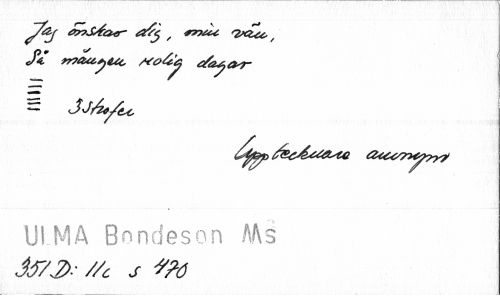 Jag önskar dig, min vän,
Så mången rolig dagar
3 strofer
Upptecknare anonym
ULMA Bondeson Ms
351 D: 11c s 470